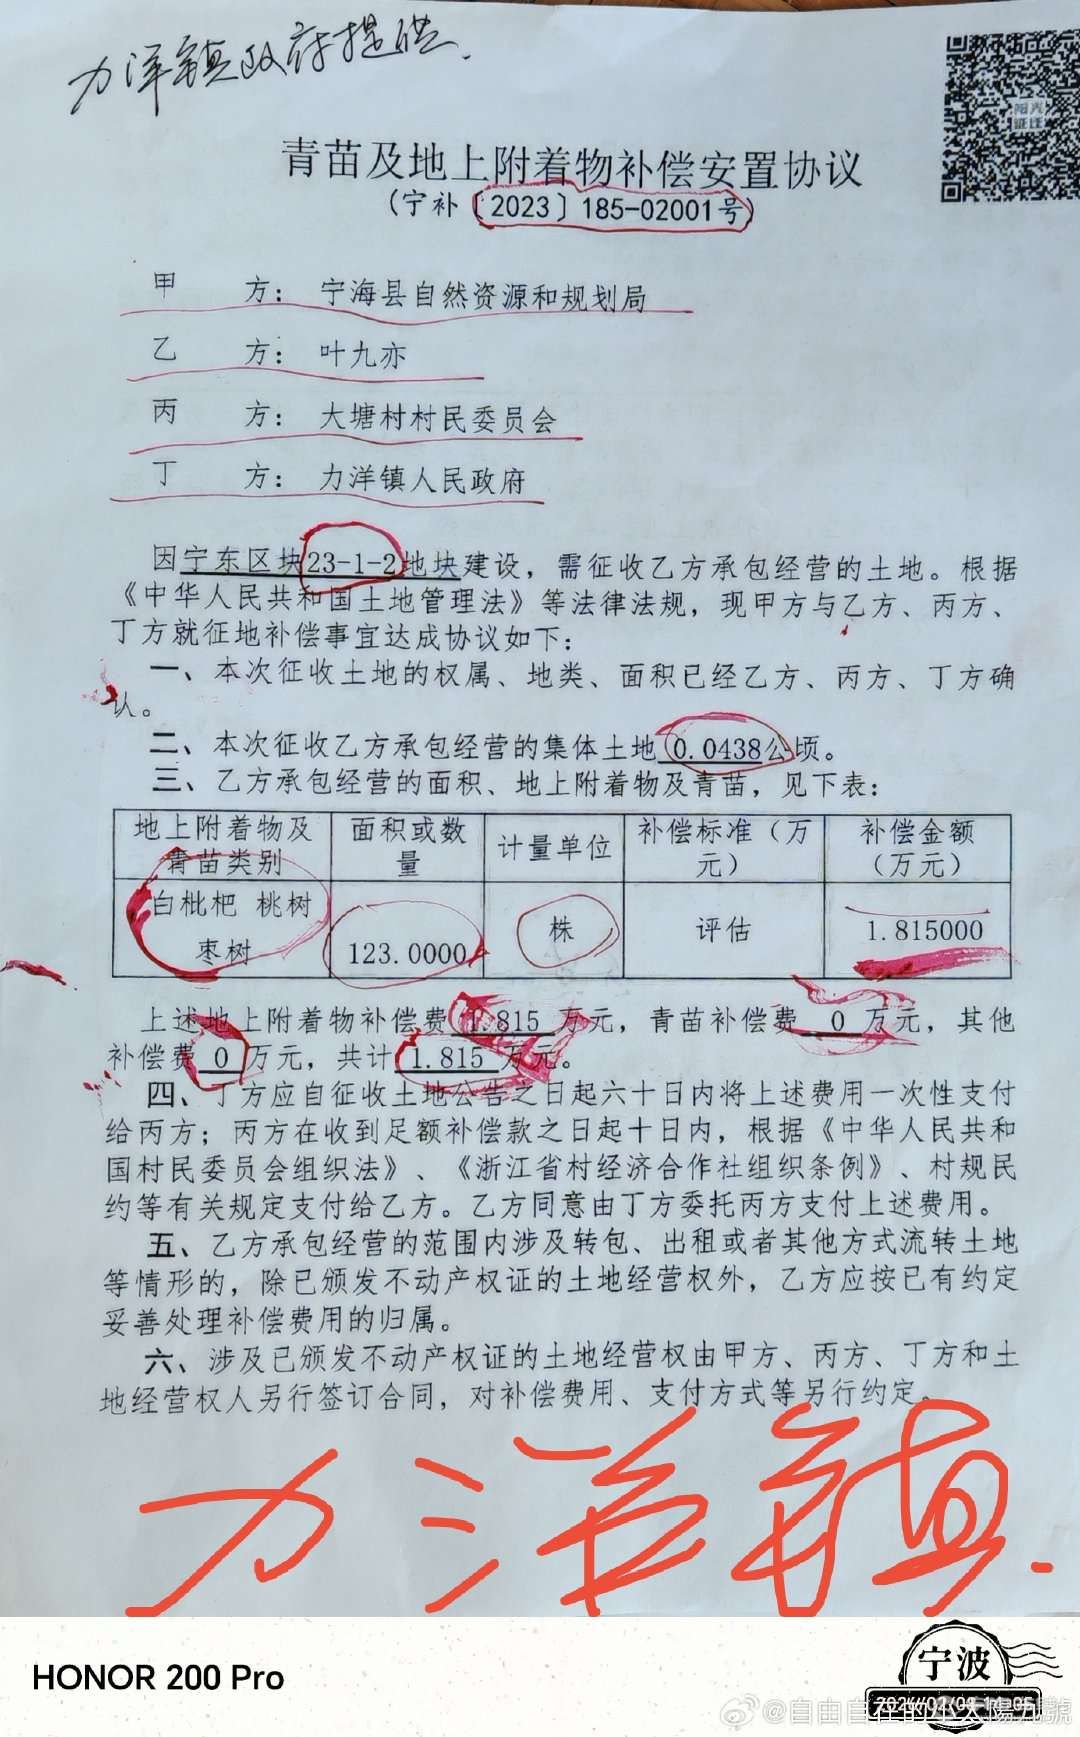 力洋镇政府提供.
阳光
征迁
青苗及地上附着物补偿安置协议
(宁补〔2023〕185-02001号)
甲 方：宁海县自然资源和规划局
乙 方：叶九亦
丙 方：大塘村村民委员会
丁 方：力洋镇人民政府
因宁东区块23-1-2地块建设，需征收乙方承包经营的土地。根据
《中华人民共和国土地管理法》等法律法规，现甲方与乙方、丙方、
丁方就征地补偿事宜达成协议如下：
一、本次征收土地的权属、地类、面积已经乙方、丙方、丁方确
认。
二、本次征收乙方承包经营的集体土地 0.0438公顷。
三、乙方承包经营的面积、地上附着物及青苗，见下表：
地上附着物及青苗类别 面积或数量 计量单位 补偿标准（万元） 补偿金额（万元）
白枇杷 桃树 枣树 123.0000 株 评估 1.815000
上述地上附着物补偿费 1.815 万元，青苗补偿费 0 万元，其他
补偿费 0 万元，共计 1.815 万元。
四、丁方应自征收土地公告之日起六十日内将上述费用一次性支付
给丙方；丙方在收到足额补偿款之日起十日内，根据《中华人民共和
国村民委员会组织法》、《浙江省村经济合作社组织条例》、村规民
约等有关规定支付给乙方。乙方同意由丁方委托丙方支付上述费用。
五、乙方承包经营的范围内涉及转包、出租或者其他方式流转土地
等情形的，除已颁发不动产权证的土地经营权外，乙方应按已有约定
妥善处理补偿费用的归属。
六、涉及已颁发不动产权证的土地经营权由甲方、丙方、丁方和土
地经营权人另行签订合同，对补偿费用、支付方式等另行约定。
力洋镇.
HONOR 200 Pro
宁波
@自由自在的小太陽九號